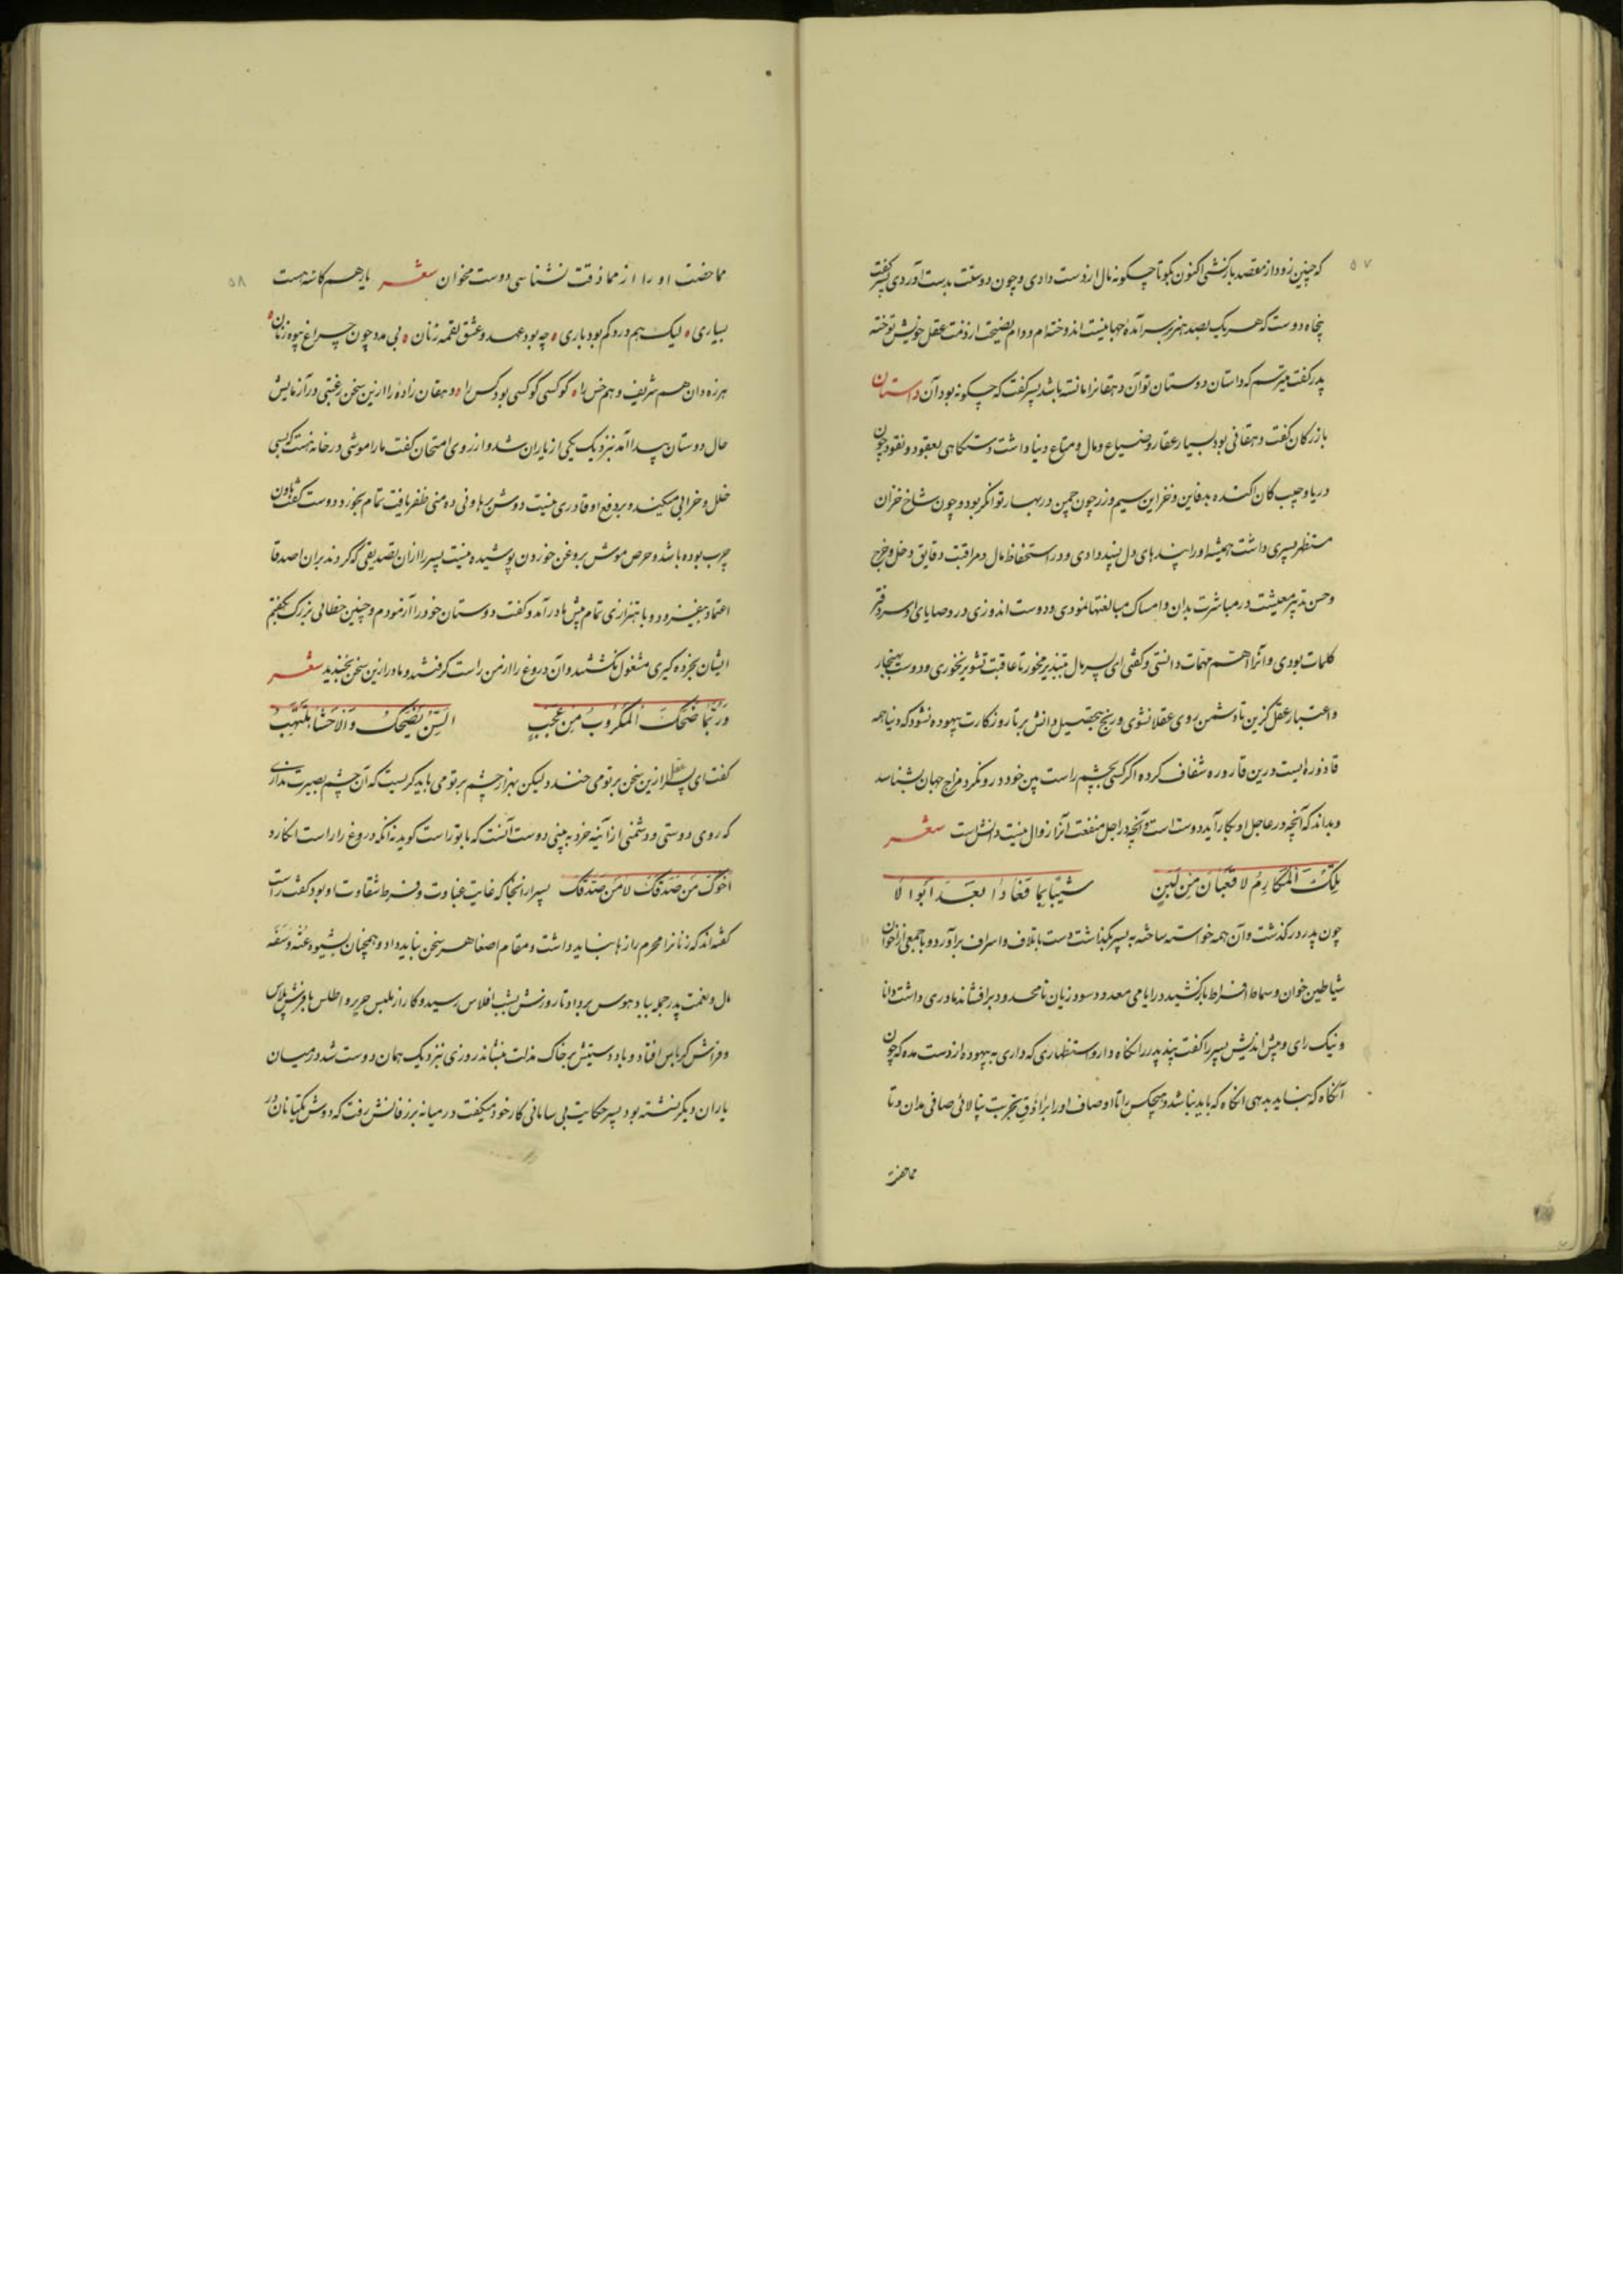 ۵۷
که چنین زود از مقصد بازگشتی اکنون بگو تا چگونه مال از دست دادی و چون دوست بدست آوردی پسر گفت
پنجاه دوست که هر یک بصد هنر سرآمده جهانیست اندوخته‌ام و وام نصیحت از ذمت عقل خویش توخته
پدر گفت میترسم که داستان دوستان تو آن دهقانرا مانسته باشد پسر گفت که چگونه بود آن داستان
بازرگان گفت دهقانی بود بسیار عقار و ضیاع و مال و متاع دنیا داشت دستگاهی بعقود و نقود چون
دریا و جیب کان آکنده بدفاین و خزاین سیم و زر چون چمن در بهار توانگر بود و چون شاخ خزان
مستظهر پسری داشت همیشه او را پندهای دل پسند دادی و در استحفاظ مال و مراقبت دقایق دخل و خرج
و حسن تدبیر معیشت در مباشرت بدان و امساک مبالغتها نمودی و دوست اندوزی در وصایای او سر دفتر
کلمات بودی و آنرا اهم مهمات دانستی و گفتی ای پسر مال بتبذیر مخور تا عاقبت تشویر نخوری و دوست بهنجار
و اعتبار عقل گزین تا دشمن روی عقلا نشوی و رنج بتحصیل دانش بر تا روزگارت بیهوده نشود که دنیا همه
قاذوره ایست درین قاروره شفاف کرده اگر کسی بچشم راست بین خود درو نگرد مزاج جهان بشناسد
و بداند که آنچه در عاجل او بکار آید دوست است و آنچه در اجل منفعت آنرا زوال نیست دانش است شعر
تلک المکارم لا قعبان من لبن شیبا بما فعادا بعد ابوالا
چون پدر در گذشت و آن همه خواسته ساخته به پسر بگذاشت دست باتلاف و اسراف برآورد و با جمعی از اخوان
شیاطین خوان و سماط افراط باز کشید در ایامی معدود سود و زیان نامحدود برافشاند مادری داشت دانا
و نیک رای و پیش اندیش پسر را گفت پند پدر نگاه دار و استظهاری که داری به بیهوده از دست مده که چون
آنگاه که نباید بدهی آنگاه که باید نباشد و هیچکس را تا اوصاف او را براووق تجربت نپالائی صافی مدان و تا
مماحضت
۵۸
مماحضت او را از مماذقت نشناسی دوست مخوان شعر یار هم کاسه هست
بسیاری لیک هم درد کم بود باری چه بود عهد و عشق لقمه زنان بی مدد چون چراغ بیوه زنان
هرزه دان هم شریف و هم خس را کو کسی کو کسی بود کس را دهقان زاده را ازین سخن رغبتی در آزمایش
حال دوستان پیدا آمد نزدیک یکی از یاران شد و از روی امتحان گفت ما را موشی در خانه هست که بسی
خلل و خرابی میکند و بر دفع او قادری نیست دوش بر هاونی ده منی ظفر یافت تمام بخورد دوست گفت هاون
چرب بوده باشد و حرص موش بروغن خوردن پوشیده نیست پسر را از آن تصدیقی که کردند بران اصدقا
اعتماد بیفزود و باهتزازی تمام پیش مادر آمد و گفت دوستان خود را آزمودم و چنین خطائی بزرگ بگفتم
ایشان بخرده گیری مشغول نگشتند و آن دروغ را از من راست گرفتند و مادر ازین سخن بخندید شعر
و ربما ضحک المکروب من عجب السن یضحک و الاحشا تلتهب
گفت ای پسر عقل ازین سخن بر تو می خندد و لیکن بهزار چشم بر تو می باید گریست که آن چشم بصیرت نداری
که روی دوستی و دشمنی از آینه خرد به بینی دوست آنست که با تو راست گوید نه آنکه دروغ را راست انگارد
اخوک من صدقک لا من صدقک پسر از آنجا که غایت غباوت و فرط شقاوت او بود گفت راست
گفته اند که زنانرا محرم رازها نباید داشت و مقام اصغا هر سخن نباید داد و همچنان بشیوه عته و سفه
مال و نعمت پدر جمله بباد هوس برداد تا روزش بشب افلاس رسید و کار از ملبس حریر و اطلس با فرش پلاس
و فراش کرباس افتاد و باد دستیش بر خاک مذلت بنشاند روزی نزدیک همان دوست شد در میان
یاران دیگر نشسته بود پسر حکایت بی سامانی کار خود میگفت در میانه بر زفانش رفت که دوش یکتا نان در